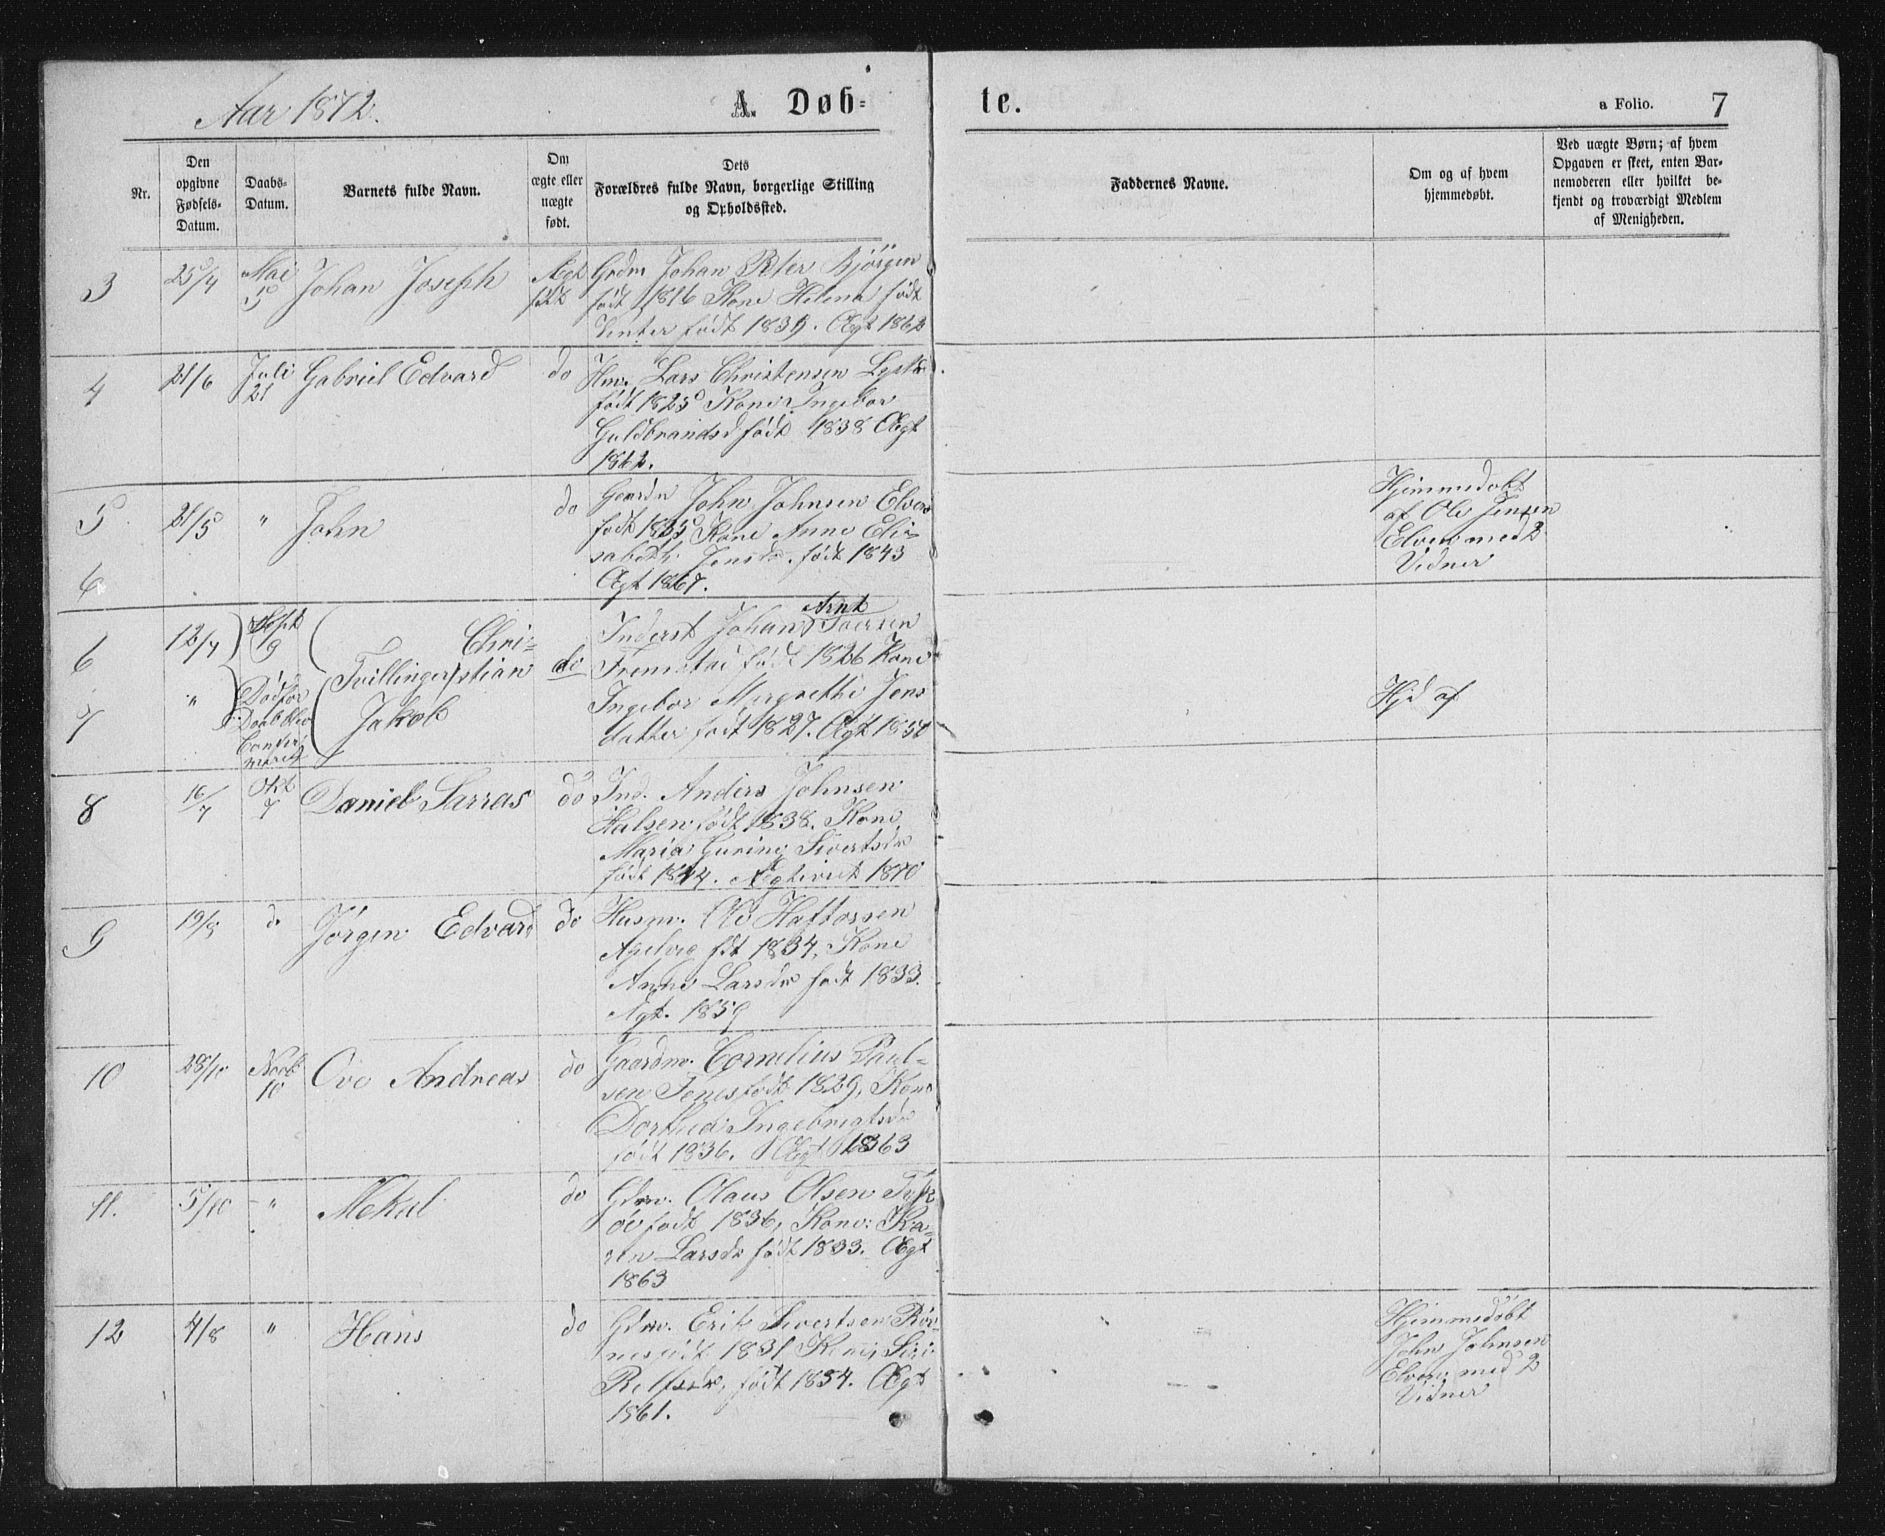 Aar 1872.
A. Døb=
te.
a Folio.
7
Nr.
Den
opgivne
Fødsels-
Datum.
Daabs-
Datum.
Barnets fulde Navn.
Om
ægte eller
uægte
født.
Dets
Forældres fulde Navn, borgerlige Stilling
og Opholdssted.
Faddernes Navne.
Om og af hvem
hjemmedøbt.
Ved uægte Børn; af hvem
Opgaven er skeet, enten Bar-
nemoderen eller hvilket be-
kjendt og troværdigt Medlem
af Menigheden.
3
25/4
Mai
5
Johan Joseph
Ægt
født
Grdm Johan Peter Bjørgen
født 1816 Kone Helena født
født 1839. Ægt 1862
4
21/6
Juli
21
Gabriel Edvard
do
Hm. Lars Christensen
født 1825 Kone Ingebor
Guldbrandsd født 1838 Ægt
1862.
5
21/5
"
John
do
John Johnsen Elven
født 1835 Kone Anne Eli-
sabeth Jensdr. født 1843
Ægt 1867.
Hjemmedøbt
af Ole Jensen
Elven med 2
Vidner
6
6
12/7
Sept
9
Chri-
Tvillinger stian
do
Arnt
Inderst Johan Iversen
Fremstad født 1826 Kone
Ingebor Margrethe Jens
datter født 1827. Ægt 1850
7
"
Død før
Daab blev
Jakob
Hjd af
8
16/7
Okt
7
Daniel Sarras
do
Ind. Anders Johnsen
Halsen født 1838. Kone
Maria Guring Sivertsdr
født 1844. Ægteviet 1870
9
19/8
do
Jørgen Edvard
do
Husm. Ole Haftorsen
fdt 1834, Kone
Anne Larsdr født 1833.
Ægt. 1859
10
28/10
Novb
10
Ove Andreas
do
Gaardm. Cornelius Paul-
sen født 1829, Kone
Dorthea Ingebrigtsdr
født 1836. Ægt 1863
11.
5/10
"
Mekal
do
Gdm. Olaus Olsen
født 1836, Kone: Ka-
ren Larsdr født 1833. Ægt
1863
12
4/8
"
Hans
do
Gdm. Erik Sivertsen Røv-
nes født 1831 Kone Siri
født 1834. Ægt
1861.
Hjemmedøbt
John Johnsen
Elven med 2
Vidner